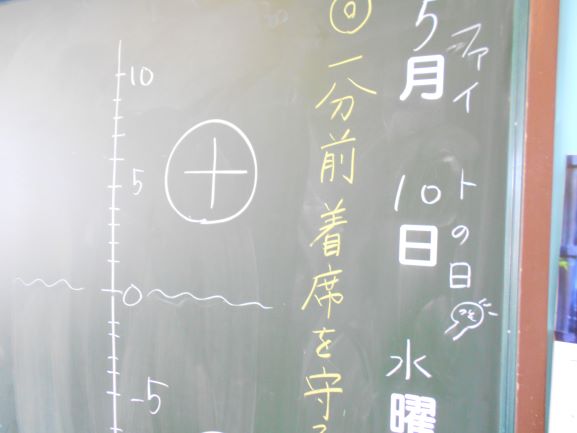 5月10日 水曜
ファイトの日
◎一分前着席を守
10
5
0
-5
+